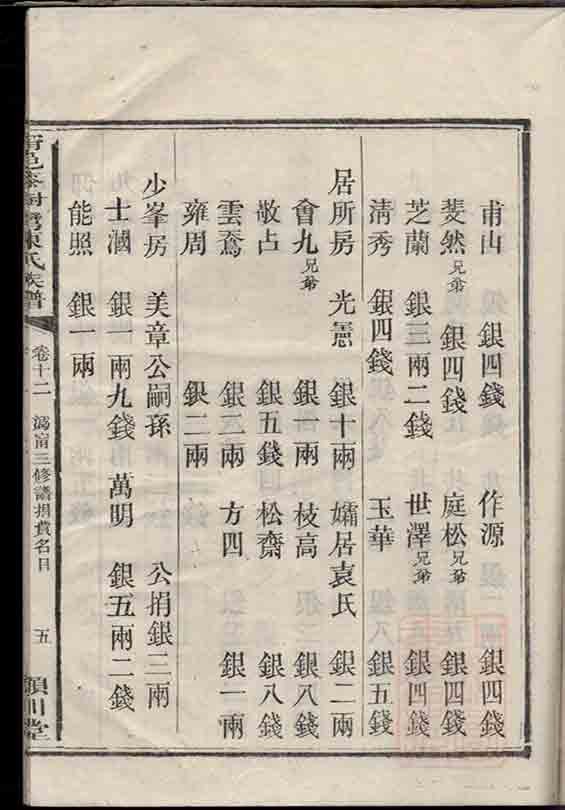 甫山 銀四錢 作源 銀四錢
斐然兄弟 銀四錢 庭松兄弟 銀四錢
芝蘭 銀三兩二錢 世澤兄弟 銀四錢
淸秀 銀四錢 玉華 銀五錢
居所房 光憲 銀十兩 孀居袁氏 銀二兩
會九兄弟 銀四兩 枝高 銀八錢
敬占 銀五錢 松齋 銀八錢
雲鶱 銀二兩 方四 銀一兩
雍周 銀二兩
少峯房 美章公嗣孫 公捐銀三兩
士涵 銀一兩九錢 萬明 銀五兩二錢
能照 銀一兩
陳氏族譜 卷十二 潙甯三修譜捐費名目 五 潁川堂